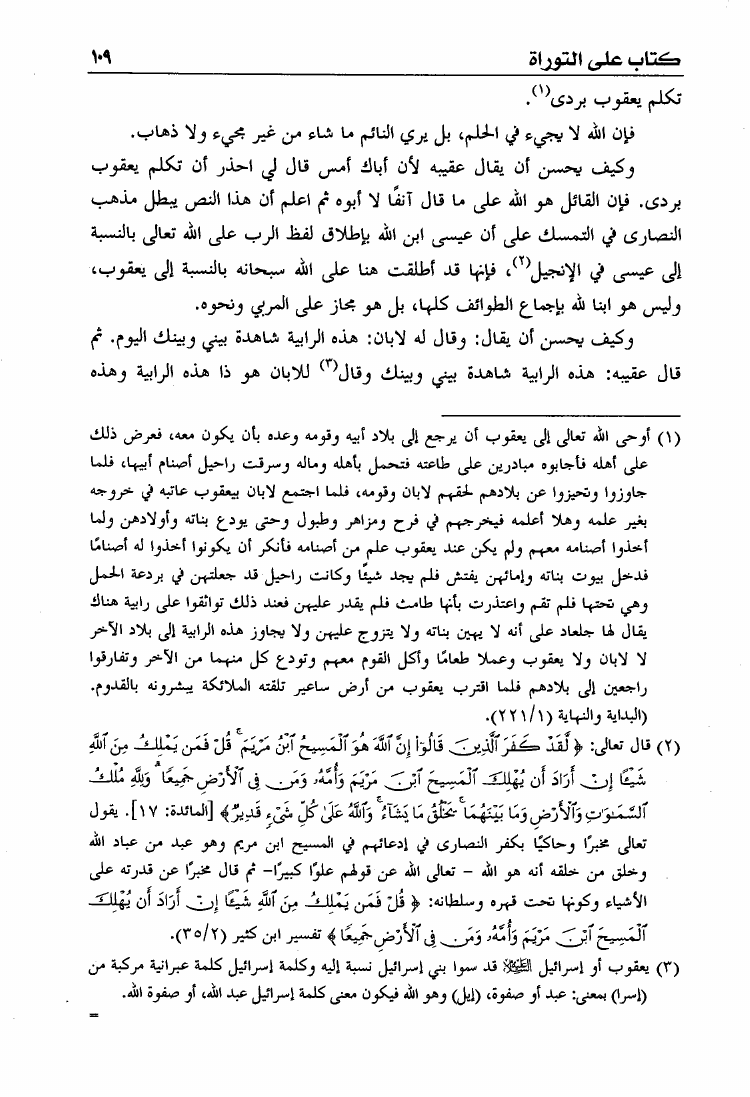 كتاب على التوراة ١٠٩
تكلم يعقوب بردى(١).
فإن الله لا يجيء في الحلم، بل يري النائم ما شاء من غير مجيء ولا ذهاب.
وكيف يحسن أن يقال عقيبه لأن أباك أمس قال لي احذر أن تكلم يعقوب
بردى. فإن القائل هو الله على ما قال آنفًا لا أبوه ثم اعلم أن هذا النص يبطل مذهب
النصارى في التمسك على أن عيسى ابن الله بإطلاق لفظ الرب على الله تعالى بالنسبة
إلى عيسى في الإنجيل(٢)، فإنها قد أطلقت هنا على الله سبحانه بالنسبة إلى يعقوب،
وليس هو ابنا لله بإجماع الطوائف كلها، بل هو مجاز على المربي ونحوه.
وكيف يحسن أن يقال: وقال له لابان: هذه الرابية شاهدة بيني وبينك اليوم. ثم
قال عقيبه: هذه الرابية شاهدة بيني وبينك وقال(٣) للابان هو ذا هذه الرابية وهذه
(١) أوحى الله تعالى إلى يعقوب أن يرجع إلى بلاد أبيه وقومه وعده بأن يكون معه، فعرض ذلك
على أهله فأجابوه مبادرين على طاعته فتحمل بأهله وماله وسرقت راحيل أصنام أبيها، فلما
جاوزوا وتحيزوا عن بلادهم لحقهم لابان وقومه، فلما اجتمع لابان بيعقوب عاتبه في خروجه
بغير علمه وهلا أعلمه فيخرجهم في فرح ومزاهر وطبول وحتى يودع بناته وأولادهن ولما
أخذوا أصنامه معهم ولم يكن عند يعقوب علم من أصنامه فأنكر أن يكونوا أخذوا له أصنامًا
فدخل بيوت بناته وإمائهن يفتش فلم يجد شيئًا وكانت راحيل قد جعلتهن في بردعة الحمل
وهي تحتها فلم تقم واعتذرت بأنها طامث فلم يقدر عليهن فعند ذلك تواثقوا على رابية هناك
يقال لها جلعاد على أنه لا يهين بناته ولا يتزوج عليهن ولا يجاوز هذه الرابية إلى بلاد الآخر
لا لابان ولا يعقوب وعملا طعامًا وأكل القوم معهم وتودع كل منهما من الآخر وتفارقوا
راجعين إلى بلادهم فلما اقترب يعقوب من أرض ساعير تلقته الملائكة يبشرونه بالقدوم.
(البداية والنهاية (٢٢١/١).
(٢) قال تعالى: ﴿ لَّقَدْ كَفَرَ ٱلَّذِينَ قَالُوٓا۟ إِنَّ ٱللَّهَ هُوَ ٱلْمَسِيحُ ٱبْنُ مَرْيَمَ ۚ قُلْ فَمَن يَمْلِكُ مِنَ ٱللَّهِ
شَيْـًٔا إِنْ أَرَادَ أَن يُهْلِكَ ٱلْمَسِيحَ ٱبْنَ مَرْيَمَ وَأُمَّهُۥ وَمَن فِى ٱلْأَرْضِ جَمِيعًا ۗ وَلِلَّهِ مُلْكُ
ٱلسَّمَـٰوَٰتِ وَٱلْأَرْضِ وَمَا بَيْنَهُمَا ۚ يَخْلُقُ مَا يَشَآءُ ۚ وَٱللَّهُ عَلَىٰ كُلِّ شَىْءٍ قَدِيرٌ﴾ [المائدة: ١٧]. يقول
تعالى مخبرًا وحاكيًا بكفر النصارى في إدعائهم في المسيح ابن مريم وهو عبد من عباد الله
وخلق من خلقه أنه هو الله - تعالى الله عن قولهم علوًا كبيرًا- ثم قال مخبرًا عن قدرته على
الأشياء وكونها تحت قهره وسلطانه: ﴿ قُلْ فَمَن يَمْلِكُ مِنَ ٱللَّهِ شَيْـًٔا إِنْ أَرَادَ أَن يُهْلِكَ
ٱلْمَسِيحَ ٱبْنَ مَرْيَمَ وَأُمَّهُۥ وَمَن فِى ٱلْأَرْضِ جَمِيعًا﴾ تفسير ابن كثير (٣٥/٢).
(٣) يعقوب أو إسرائيل عليه السلام قد سوا بني إسرائيل نسبة إليه وكلمة إسرائيل كلمة عبرانية مركبة من
(إسرا) بمعنى: عبد أو صفوة، (إيل) وهو الله فيكون معنى كلمة إسرائيل عبد الله، أو صفوة الله.
=